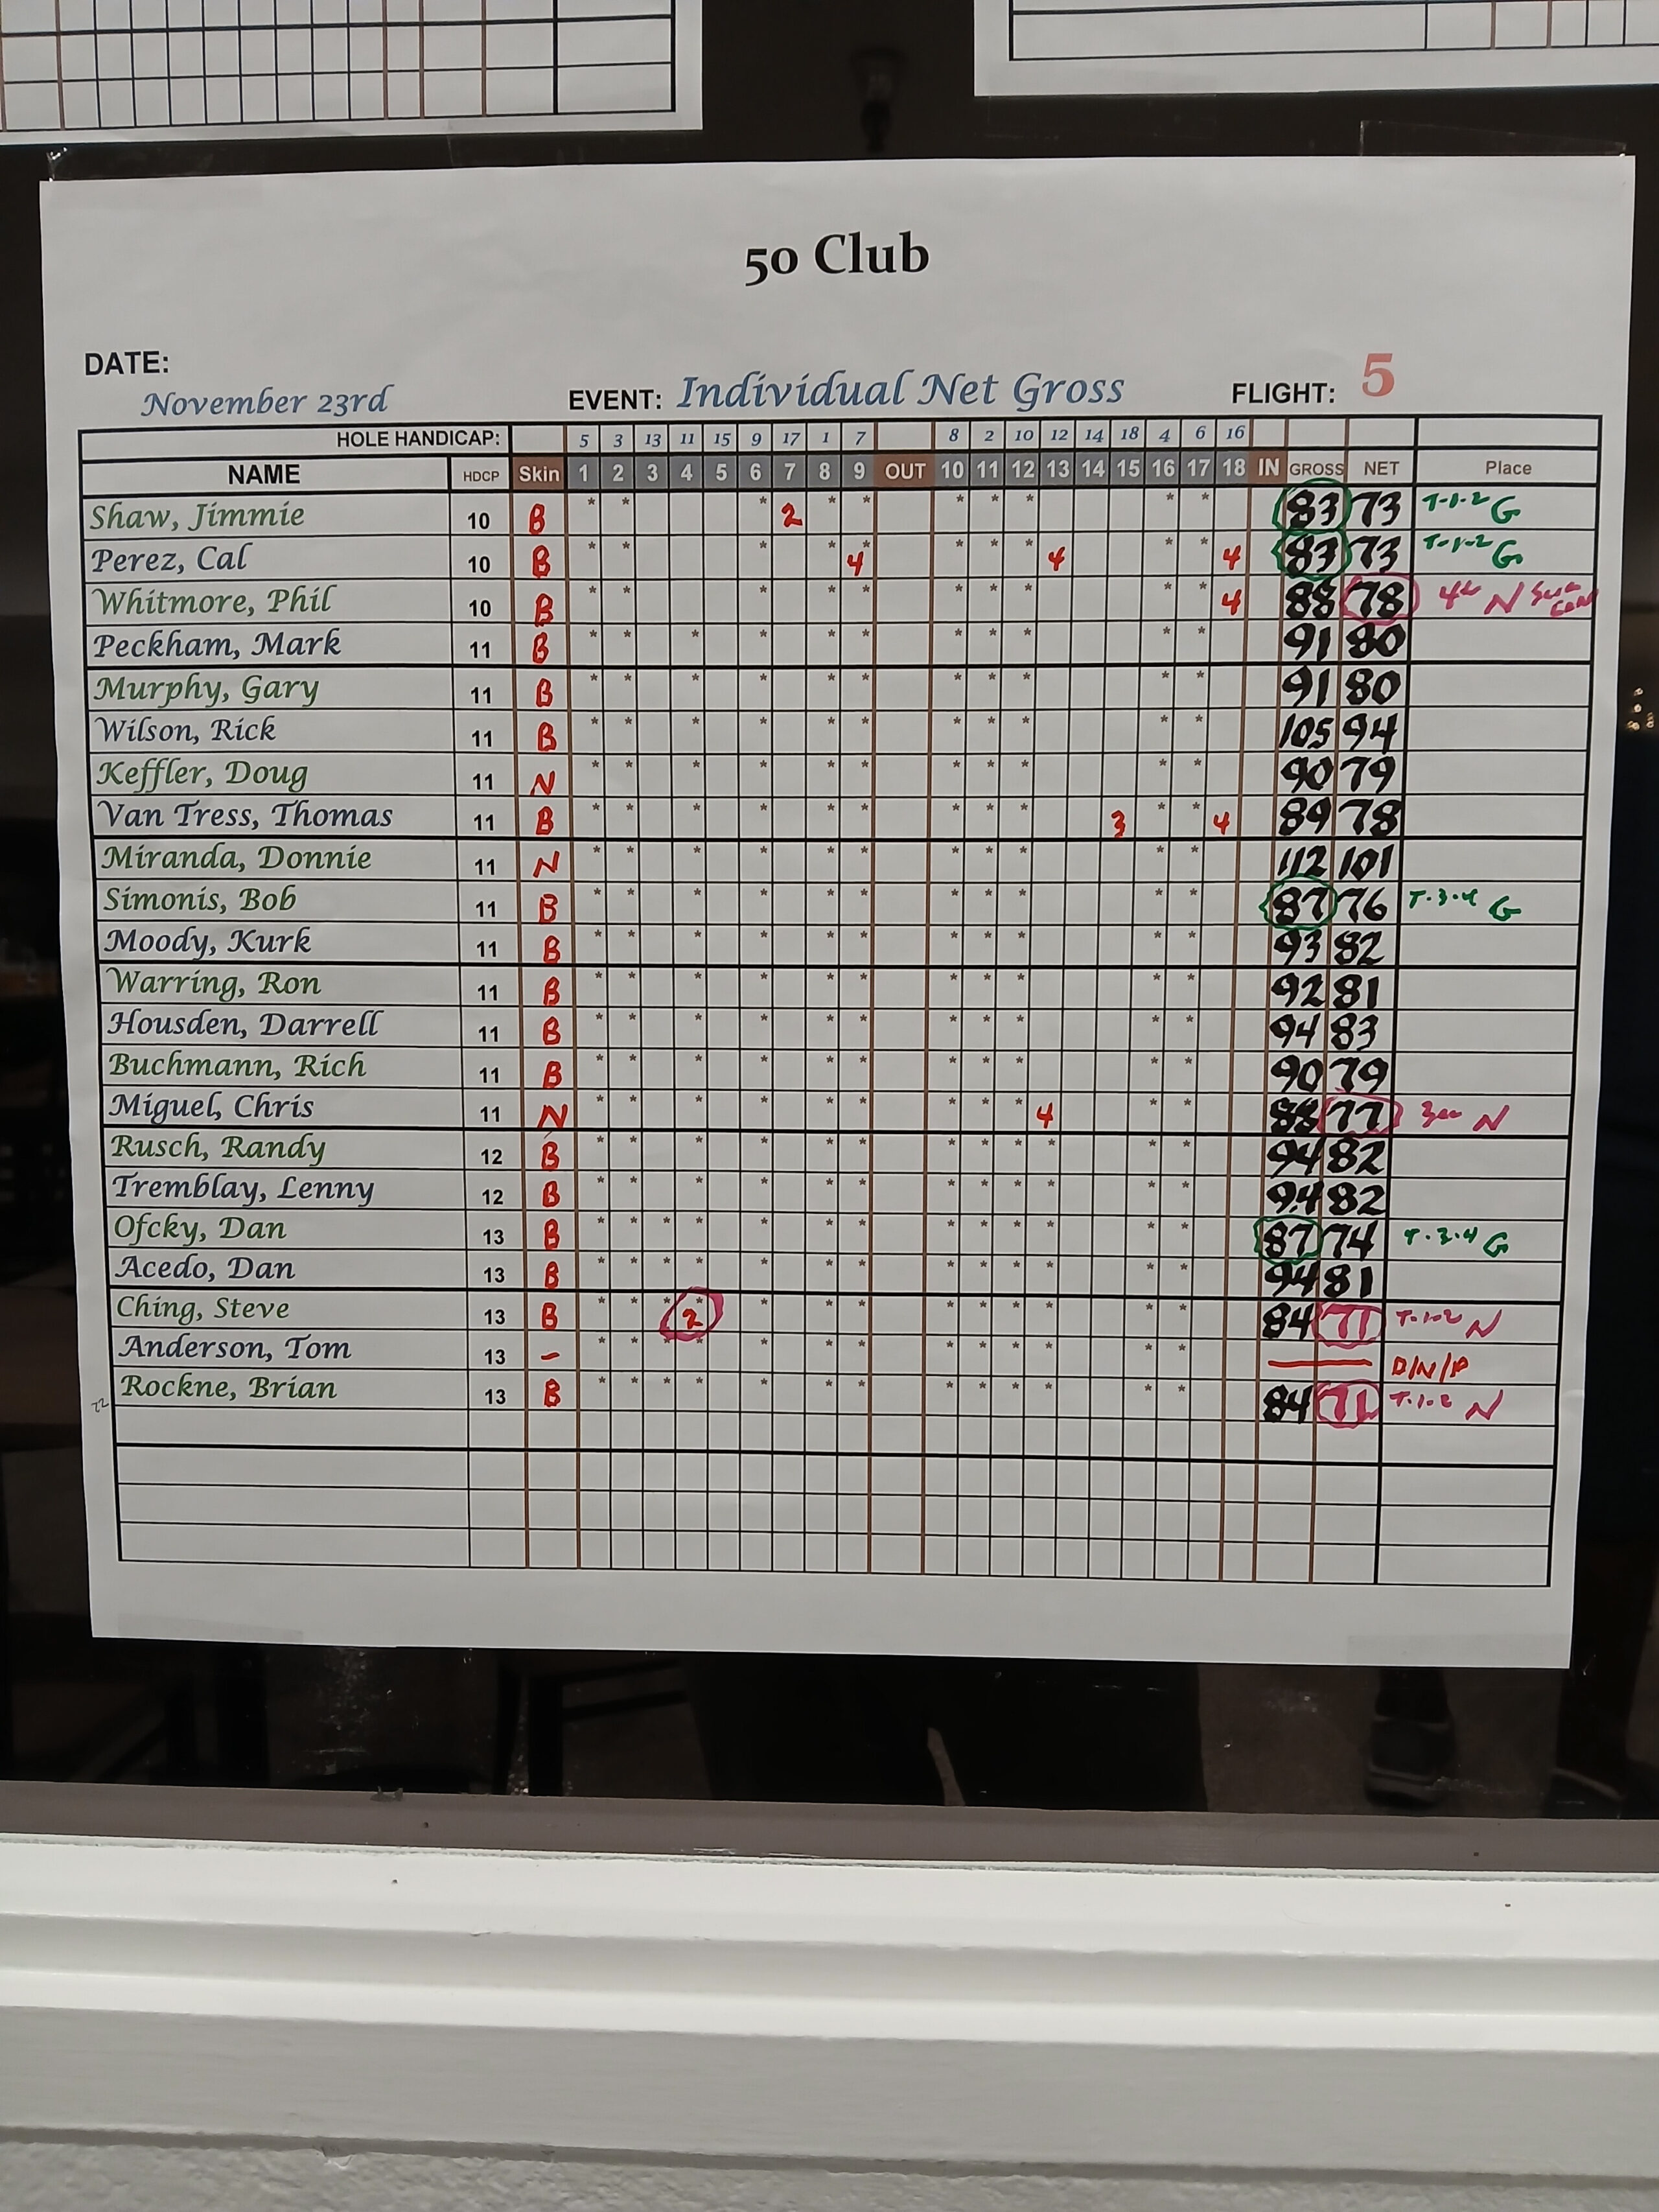 50 Club
DATE: November 23rd EVENT: Individual Net Gross FLIGHT: 5
HOLE HANDICAP: 5 3 13 11 15 9 17 1 7 8 2 10 12 14 18 4 6 16
NAME HDCP Skin 1 2 3 4 5 6 7 8 9 OUT 10 11 12 13 14 15 16 17 18 IN GROSS NET Place
Shaw, Jimmie 10 B * * * 2 * * * * * * * 83 73 T-1-2 G
Perez, Cal 10 B * * * * * 4 * * * 4 * * 4 83 73 T-1-2 G
Whitmore, Phil 10 B * * * * * * * * * * 4 88 78 4th N
Peckham, Mark 11 B * * * * * * * * * * * 91 80
Murphy, Gary 11 B * * * * * * * * * * * 91 80
Wilson, Rick 11 B * * * * * * * * * * * 105 94
Keffler, Doug 11 N * * * * * * * * * * * 90 79
Van Tress, Thomas 11 B * * * * * * * * * 3 * * 4 89 78
Miranda, Donnie 11 N * * * * * * * * * * * 112 101
Simonis, Bob 11 B * * * * * * * * * * * 87 76 T-3-4 G
Moody, Kurk 11 B * * * * * * * * * * * 93 82
Warring, Ron 11 B * * * * * * * * * * * 92 81
Housden, Darrell 11 B * * * * * * * * * * * 94 83
Buchmann, Rich 11 B * * * * * * * * * * * 90 79
Miguel, Chris 11 N * * * * * * * * * 4 * * 88 77 N
Rusch, Randy 12 B * * * * * * * * * * * * 94 82
Tremblay, Lenny 12 B * * * * * * * * * * * * 94 82
Ofcky, Dan 13 B * * * * * * * * * * * * * 87 74 T-3-4 G
Acedo, Dan 13 B * * * * * * * * * * * * * 94 81
Ching, Steve 13 B * * * * 2 * * * * * * * * * 84 71 T-1-2 N
Anderson, Tom 13 - * * * * * * * * * * * * * D/N/P
Rockne, Brian 13 B * * * * * * * * * * * * * 84 71 T-1-2 N
22